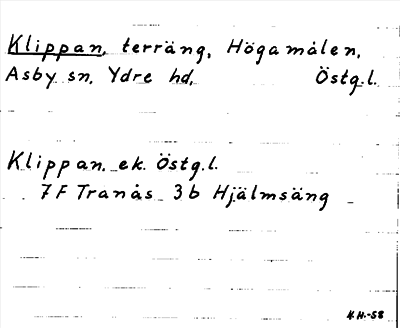 Klippan, terräng, Högamålen,
Asby sn, Ydre hd, Östg.l.
Klippan. ek. Östg.l.
7F Tranås 3b Hjälmsäng
H.-58